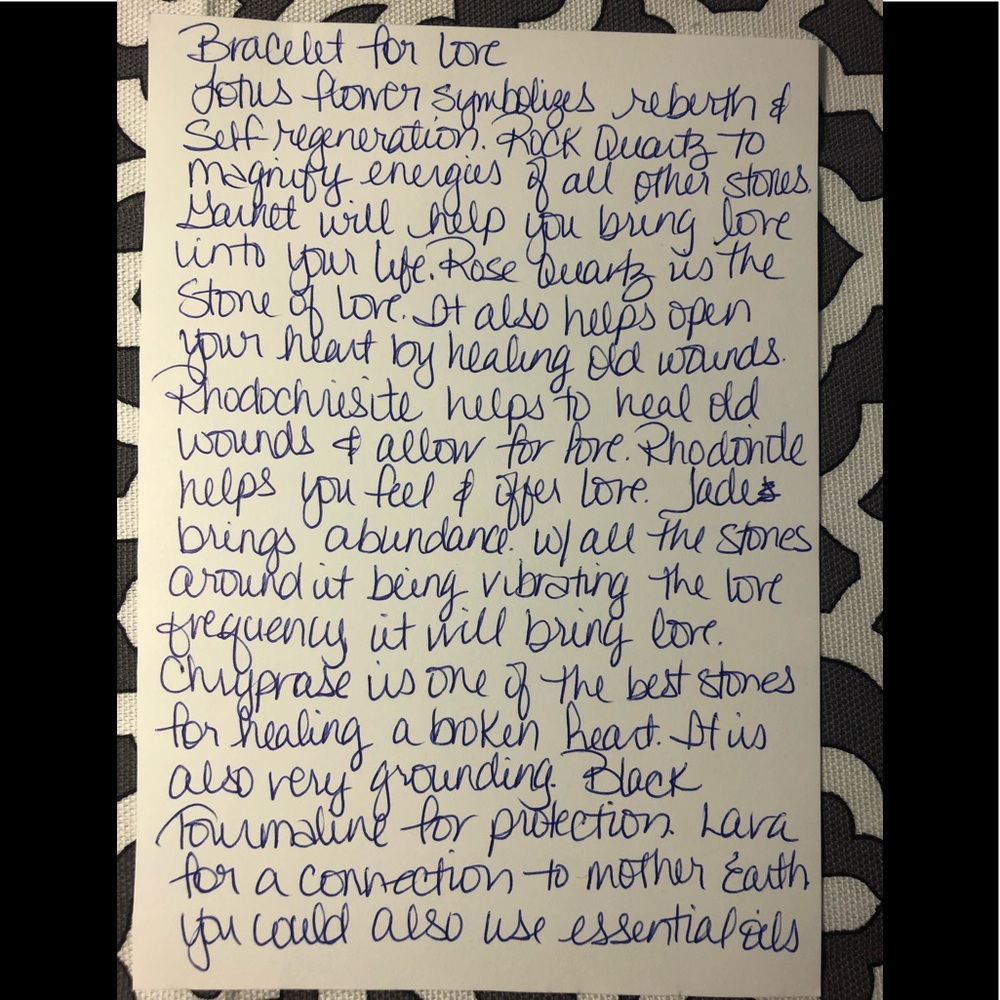 Bracelet for Love
Lotus flower symbolizes reberth &
Self regeneration. Rock Quartz to
magnify energies of all other stones.
Garnet will help you bring love
into your life. Rose Quartz is the
Stone of Love. It also helps open
your heart by healing old wounds.
Rhodochrisite helps to heal old
wounds & allow for love. Rhodonite
helps you feel & offer love. Jade
brings abundance. w/ all the stones
around it being vibrating the love
frequency it will bring love.
Chryprase is one of the best stones
for healing a broken heart. It is
also very grounding. Black
Tourmaline for protection. Lava
for a connection to mother Earth
you could also use essential oils